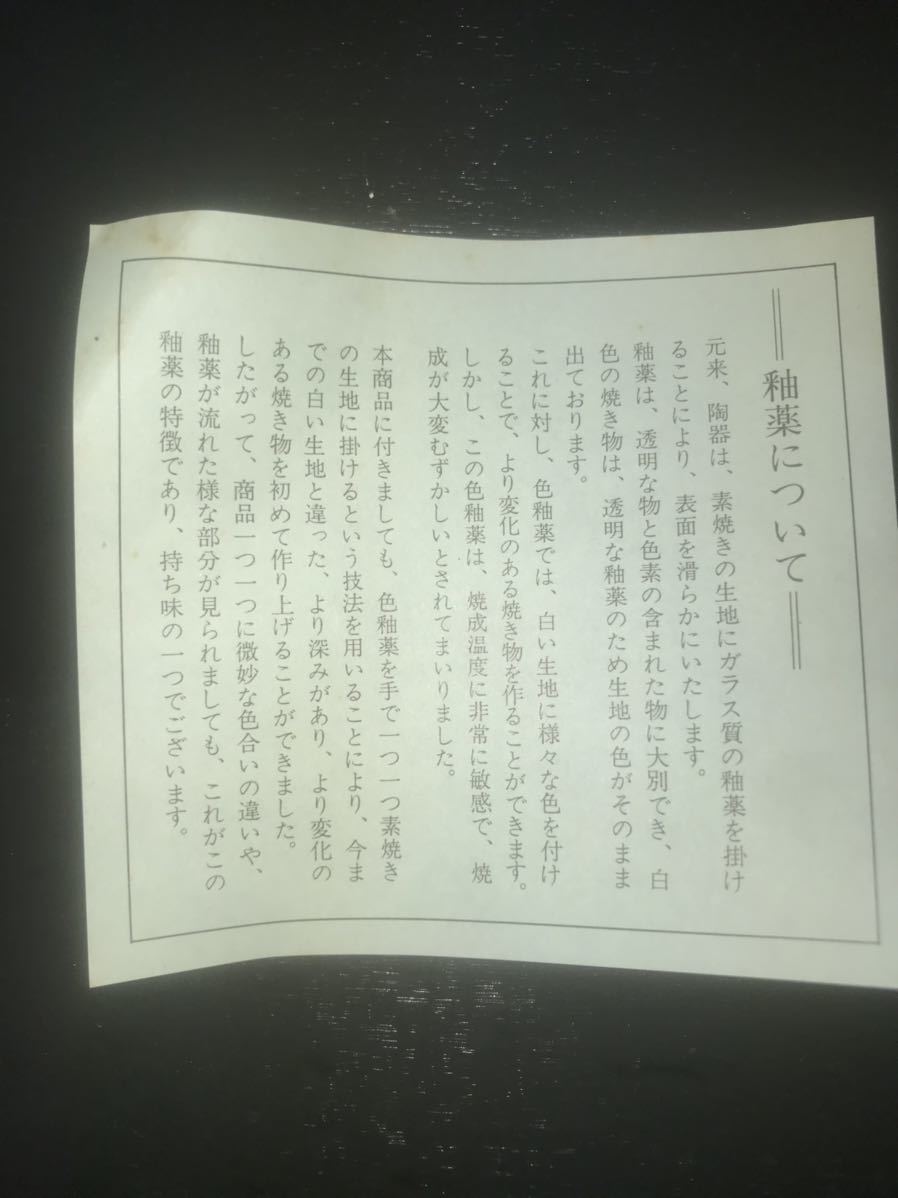 釉薬について
元来、陶器は、素焼きの生地にガラス質の釉薬を掛け
ることにより、表面を滑らかにいたします。
釉薬は、透明な物と色素の含まれた物に大別でき、白
色の焼き物は、透明な釉薬のため生地の色がそのまま
出ております。
これに対し、色釉薬では、白い生地に様々な色を付け
ることで、より変化のある焼き物を作ることができます。
しかし、この色釉薬は、焼成温度に非常に敏感で、焼
成が大変むずかしいとされてまいりました。
本商品に付きましても、色釉薬を手で一つ一つ素焼き
の生地に掛けるという技法を用いることにより、今ま
での白い生地と違った、より深みがあり、より変化の
ある焼き物を初めて作り上げることができました。
したがって、商品一つ一つに微妙な色合いの違いや、
釉薬が流れた様な部分が見られましても、これがこの
釉薬の特徴であり、持ち味の一つでございます。